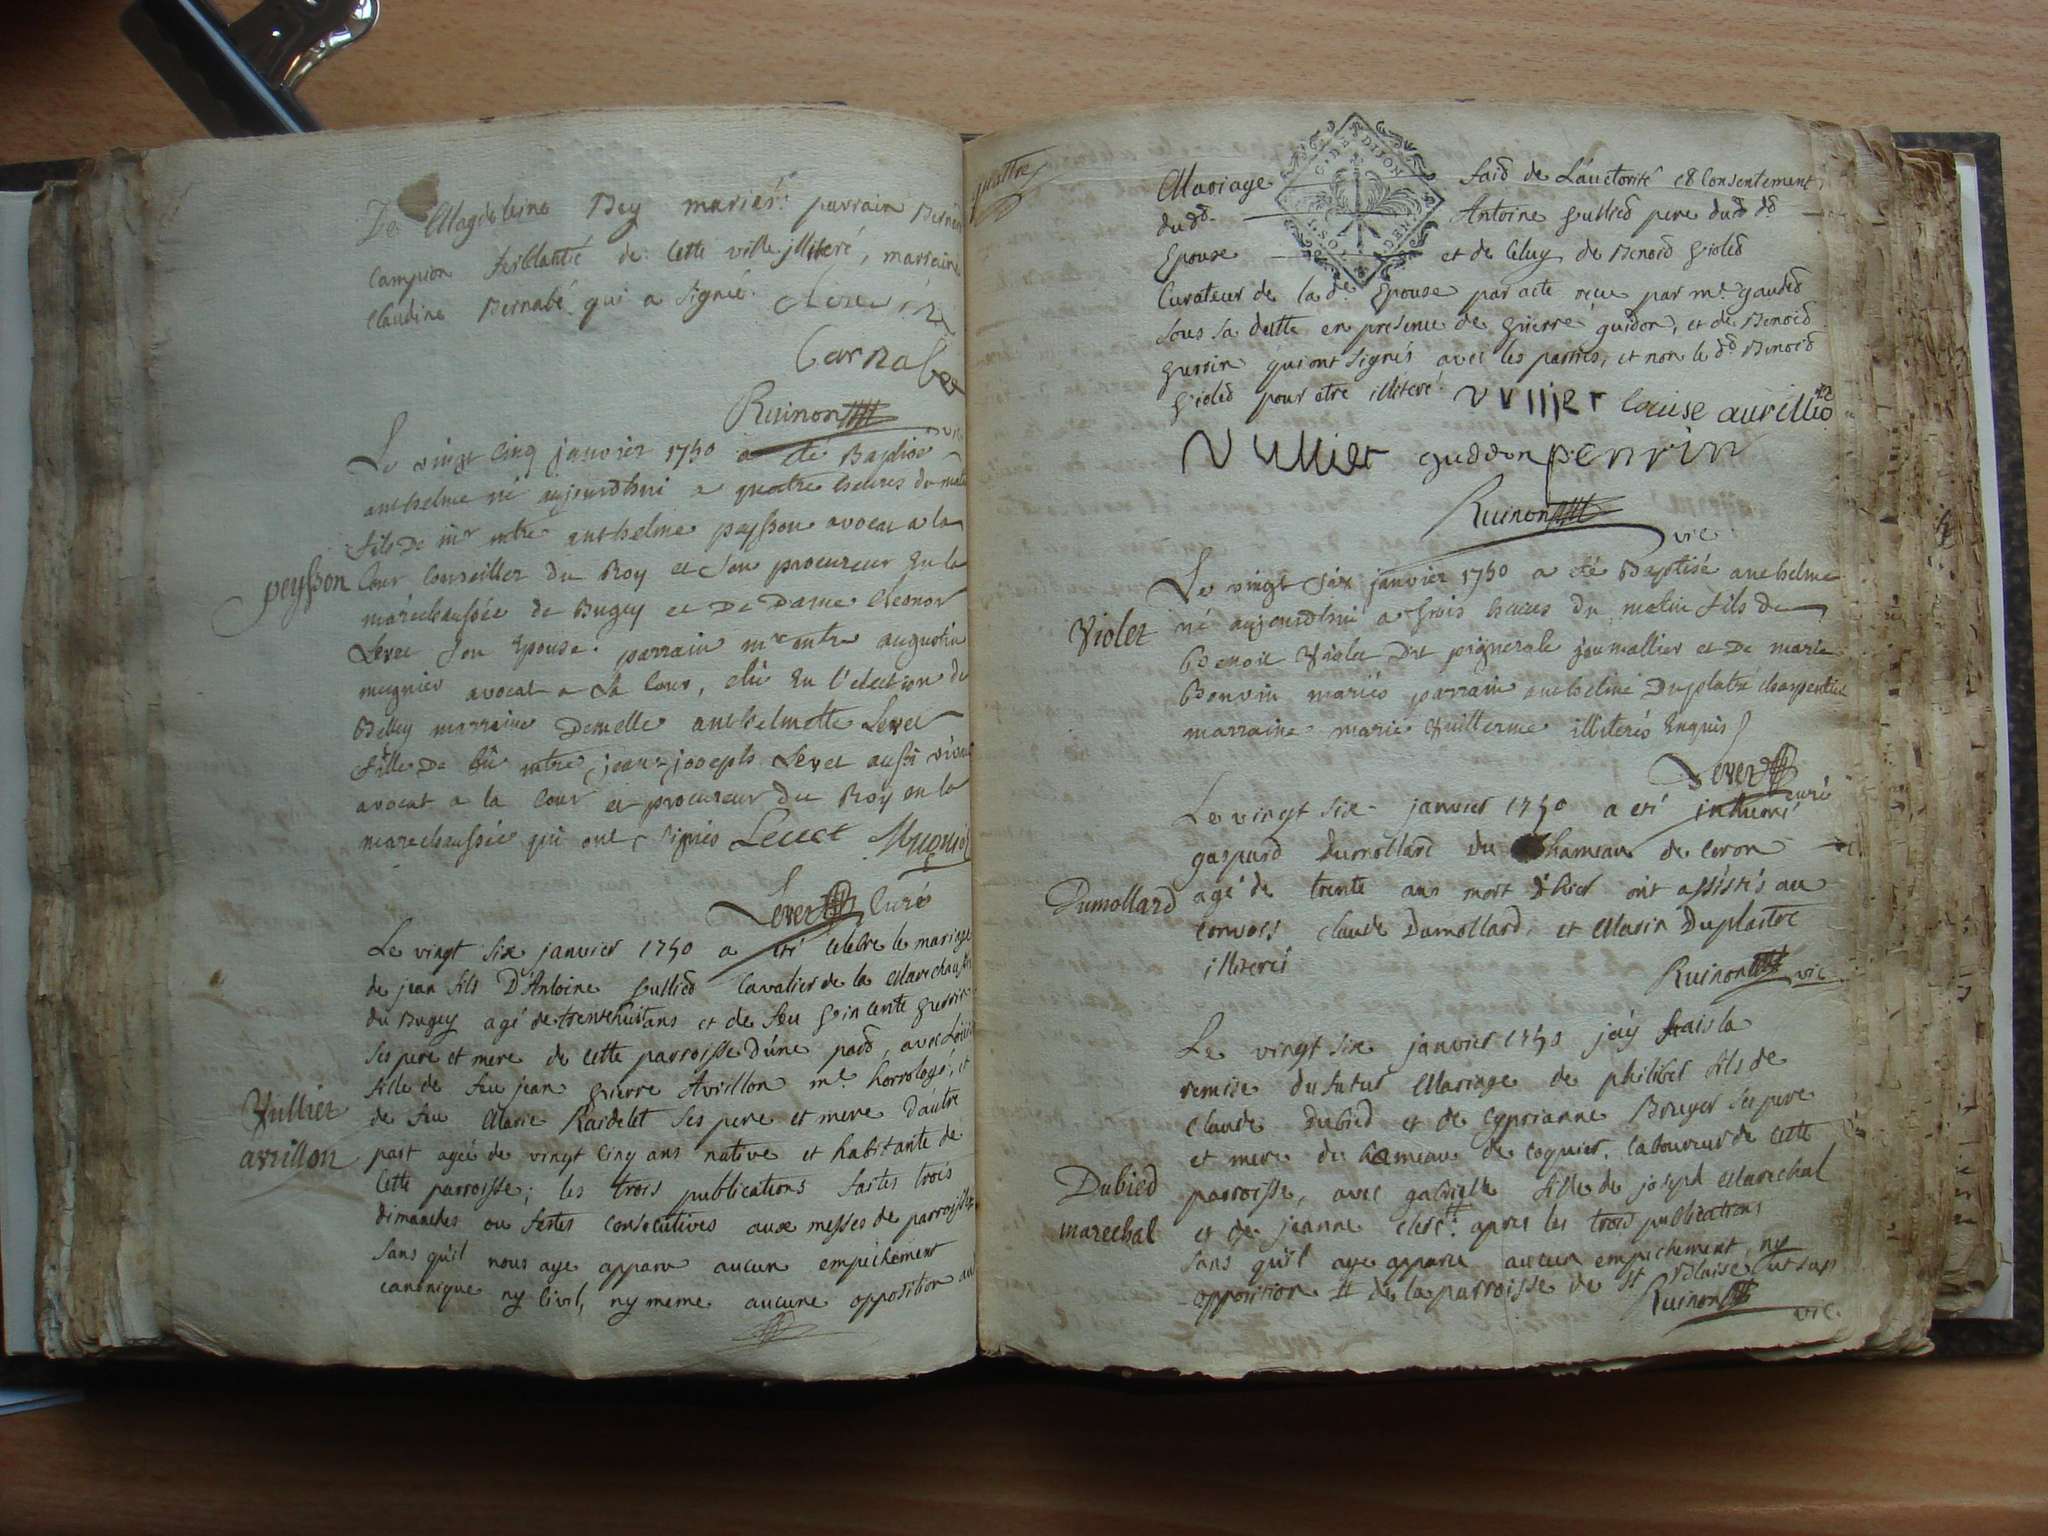 De Magdeleine Bey mariés. parrain Bernard
Campion ferblantié de Cette ville illiteré, marraine
Claudine Bernabé qui a signée.
Bernabe
Ruinon
vic
Le vingt cinq janvier 1750 a été Baptisé
anthelme né aujourdhui a quatre heures du matin
fils De mr mtre anthelme peysson avocat a la
peysson
Cour Conseiller du Roy et son procureur En la
maréchaussée de Bugey et De Dame Eleonor
Levet son Epouse. parrain mre mtre augustin
mugnier avocat a la Cour, élu En l'election de
Belley marraine Demelle anthelmette Levet
fille De feu mtre jean-joseph Levet aussi vivant
avocat a la Cour et procureur du Roy en la
marechaussée qui ont signés Levet Mugnier
Levet Curé
Le vingt six janvier 1750 a été celebré le mariage
de jean fils D'Antoine Vullied Cavalier de la Marechaussée
du Bugey agé de trente huit ans et de feu Vincente guerrin
ses pere et mere de cette parroisse d'une pard, avec Louise
fille de feu jean pierre Avrillon me. horrologé, et
Vullier
avrillon
de feu Marie Raidelet ses pere et mere d'autre
part agée de vingt cinq ans native et habitante de
Cette parroisse; les trois publications faites trois
dimanches ou festes consecutives aux messes de parroisse
sans qu'il nous aye apparu aucun empechement
canonique ny Civil, ny meme aucune opposition au
quattre
Mariage faid de L'auctorité et Consentement
dud. Antoine Vullied pere dud dd
Epouse et de Celuy de Benoid Violed
Curateur de la de. Epouse par acte reçu par me. gauded
sous sa datte en presence de pierre guidon, et de Benoid
perrin qui ont signés avec les parties, et non le dd. Benoid
Violed pour etre illiteré. VVllier Louise aurillio
Vulliet guidon perrin
Ruinon
vic
Le vingt six janvier 1750 a été Baptisé anthelme
Violet
né aujourdhui a trois heures du matin fils de
Benoit Violet Dit peignerale journallier et De marie
Bonvin mariés parrain anthelme Duplatre charpentier
marraine marie Vuillerme illiterés Enquis
Levet curé
Le vingt six janvier 1750 a été inhumé
gaspard Dumollard du hameau de Ceron
Dumollard
agé de trente ans mort d'hier ont assistés au
convois Claude Dumollard, et Marin Duplastre
illiterés
Ruinon vic
Le vingt six janvier 1750 j'ay fais la
remise du futur Mariage de philibert fils de
Claude Dubied et de Cyprianne Bruyer ses pere
et mere du hameau de Coquier, Laboureur de Cette
Dubied
marechal
parroisse, avec gabrielle fille de joseph Marechal
et de jeanne Clerc # apres les trois publications
sans qu'il aye apparu aucun empechement, ny
opposition # de la parroisse de St Blaise ut sup
Ruinon
vic.